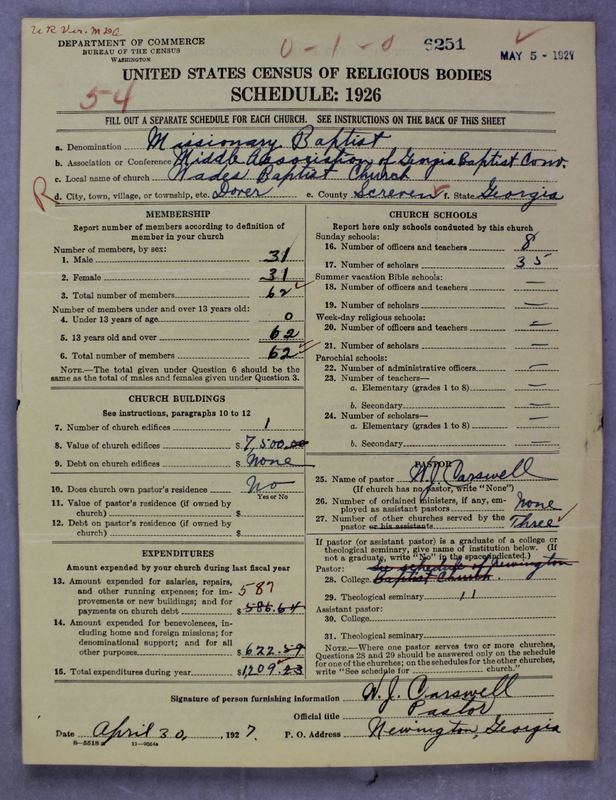 U R Ver. M
DEPARTMENT OF COMMERCE
BUREAU OF THE CENSUS
WASHINGTON
0-1-0
6251
MAY 5 - 1927
54
UNITED STATES CENSUS OF RELIGIOUS BODIES
SCHEDULE: 1926
FILL OUT A SEPARATE SCHEDULE FOR EACH CHURCH. SEE INSTRUCTIONS ON THE BACK OF THIS SHEET
a. Denomination Missionary Baptist
b. Association or Conference Middle Association of Georgia Baptist Conv.
c. Local name of church Wades Baptist Church
R
d. City, town, village, or township, etc. Dover e. County Screven f. State Georgia
MEMBERSHIP
Report number of members according to definition of
member in your church
Number of members, by sex:
1. Male 31
2. Female 31
3. Total number of members 62
Number of members under and over 13 years old:
4. Under 13 years of age 0
5. 13 years old and over 62
6. Total number of members 62
NOTE.—The total given under Question 6 should be the
same as the total of males and females given under Question 3.
CHURCH BUILDINGS
See instructions, paragraphs 10 to 12
7. Number of church edifices 1
8. Value of church edifices $ 7,500.00
9. Debt on church edifices $ None
10. Does church own pastor's residence No
Yes or No
11. Value of pastor's residence (if owned by
church) $
12. Debt on pastor's residence (if owned by
church) $
EXPENDITURES
Amount expended by your church during last fiscal year
13. Amount expended for salaries, repairs,
and other running expenses; for im-
provements or new buildings; and for
payments on church debt $ 586.64
587
14. Amount expended for benevolences, in-
cluding home and foreign missions; for
denominational support; and for all
other purposes $ 622.59
15. Total expenditures during year $ 1209.23
CHURCH SCHOOLS
Report here only schools conducted by this church
Sunday schools:
16. Number of officers and teachers 8
17. Number of scholars 35
Summer vacation Bible schools:
18. Number of officers and teachers —
19. Number of scholars —
Week-day religious schools:
20. Number of officers and teachers —
21. Number of scholars —
Parochial schools:
22. Number of administrative officers —
23. Number of teachers—
a. Elementary (grades 1 to 8) —
b. Secondary —
24. Number of scholars—
a. Elementary (grades 1 to 8) —
b. Secondary —
PASTOR
25. Name of pastor W. J. Carswell
(If church has no pastor, write "None")
26. Number of ordained ministers, if any, em-
ployed as assistant pastors None
27. Number of other churches served by the
pastor or his assistants Three
If pastor (or assistant pastor) is a graduate of a college or
theological seminary, give name of institution below. (If
not a graduate, write "No" in the space indicated.)
Pastor: See schedule of Newington
28. College Baptist Church.
29. Theological seminary 11
Assistant pastor:
30. College
31. Theological seminary
NOTE.—Where one pastor serves two or more churches,
Questions 28 and 29 should be answered only on the schedule
for one of the churches; on the schedules for the other churches,
write "See schedule for church."
Signature of person furnishing information W. J. Carswell
Official title Pastor
Date April 30, 1927. P. O. Address Newington, Georgia
8-5518 11-9564a